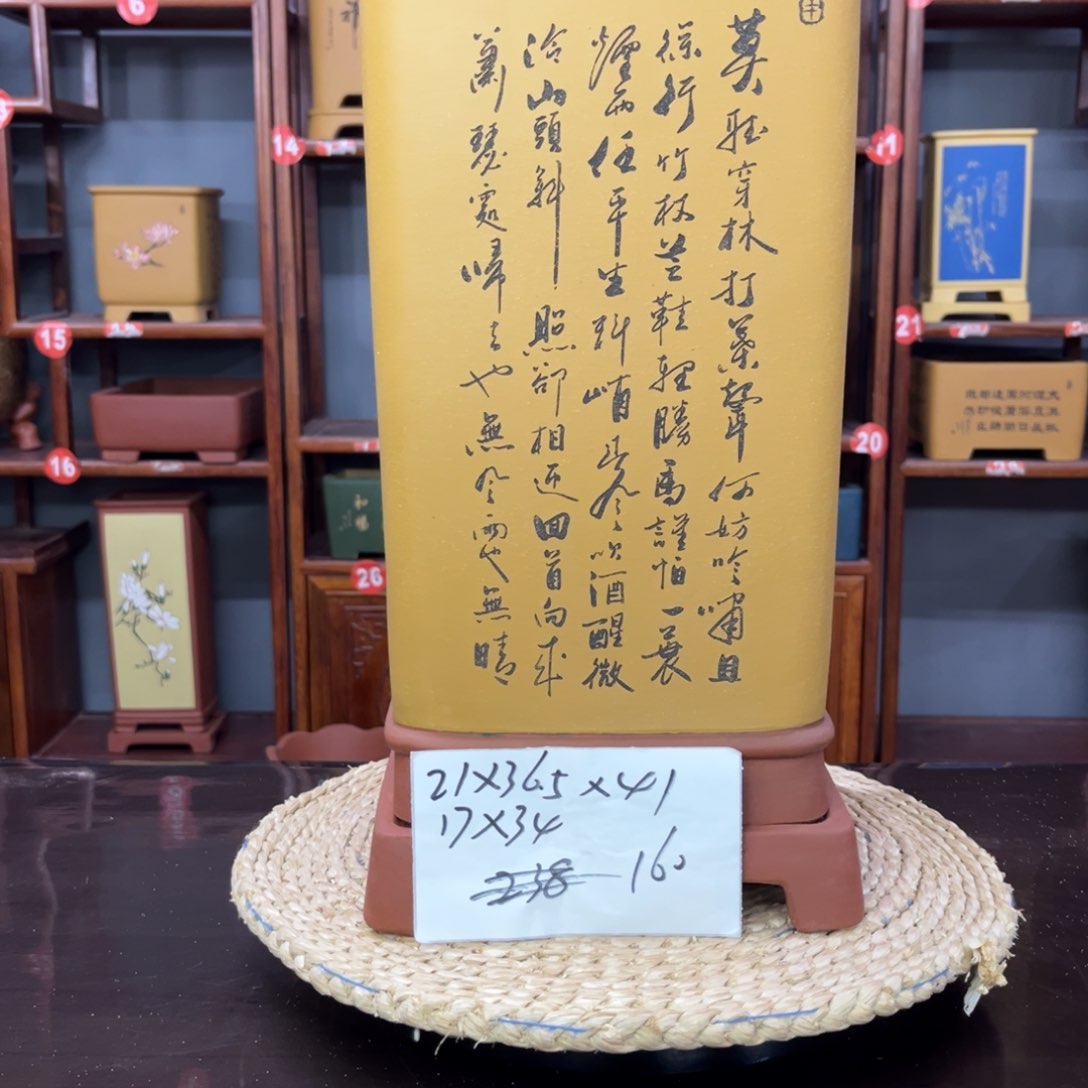 莫聽穿林打葉聲何妨吟嘯且
徐行竹杖芒鞋輕勝馬誰怕一蓑
煙雨任平生料峭春風吹酒醒微
冷山頭斜照卻相迎回首向來
蕭瑟處歸去也無風雨也無晴
21X36.5X41
17X34
238 160
6
14
15
16
26
11
21
20